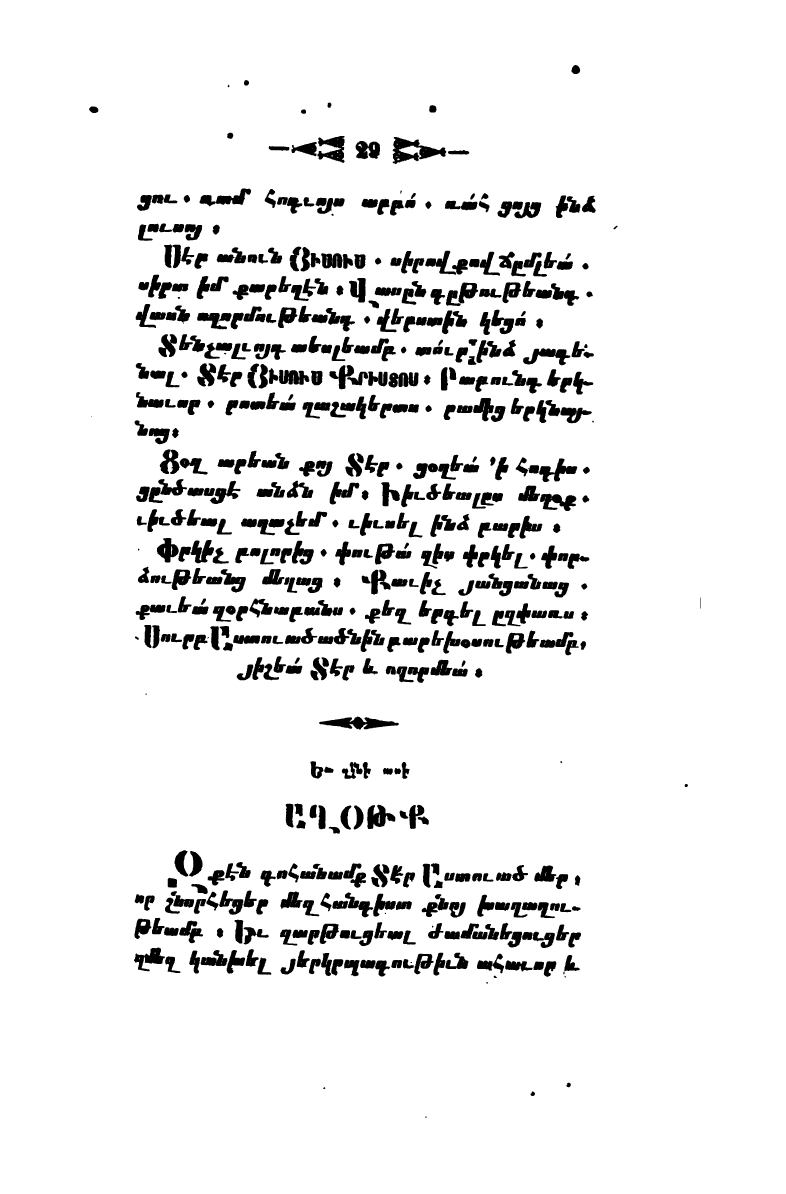 29
ցու. զամ Հոգւոյս արբո՛. զա՛հ ցոյց ինձ
լուսոյ։
Սէր անուն ՅԻՍՈՒՍ. սիրով քով ճըմլեա՛.
սիրտ իմ քարեղէն։ Վասըն գըթութեանդ.
վասն ողորմութեանդ. վերստին կեցո՛։
Տենչալւոյդ տեսլեամբ. տո՛ւր ինձ յագե֊
նալ. Տէր ՅԻՍՈՒՍ ՔՐԻՍՏՈՍ։ Րաբունդ երկ֊
նաւոր. րոտեա՛ զաշակերտս. րամից երկնայ֊
նոց։
Ցօղ արեան քոյ Տէր. ցօղեա՛ ՚ի հոգիս.
ցընծասցէ անձն իմ։ Իւծեալըս մեղօք.
ւիւծեալ աղաչեմ. ւիւսել ինձ բարիս։
Փրկիչ բոլորից. փութա՛ զիս փրկել. փոր֊
ձութեանց մեղաց։ Քաւիչ յանցանաց.
քաւեա՛ զօրհնաբանս. քեզ երգել ըզփառս։
Սուրբ Աստուածածնին բարեխօսութեամբ,
յիշեա՛ Տէր և ողորմեա՛։
ԱՂՕԹՔ
Զքէն գոհանամք Տէր Աստուած մեր,
որ շնորհեցեր մեզ հանգիստ քնոյ խաղաղու֊
թեամբ։ Եւ զարթուցեալ ժամանեցուցեր
զմեզ կանխել յերկրպագութիւն ահաւոր և